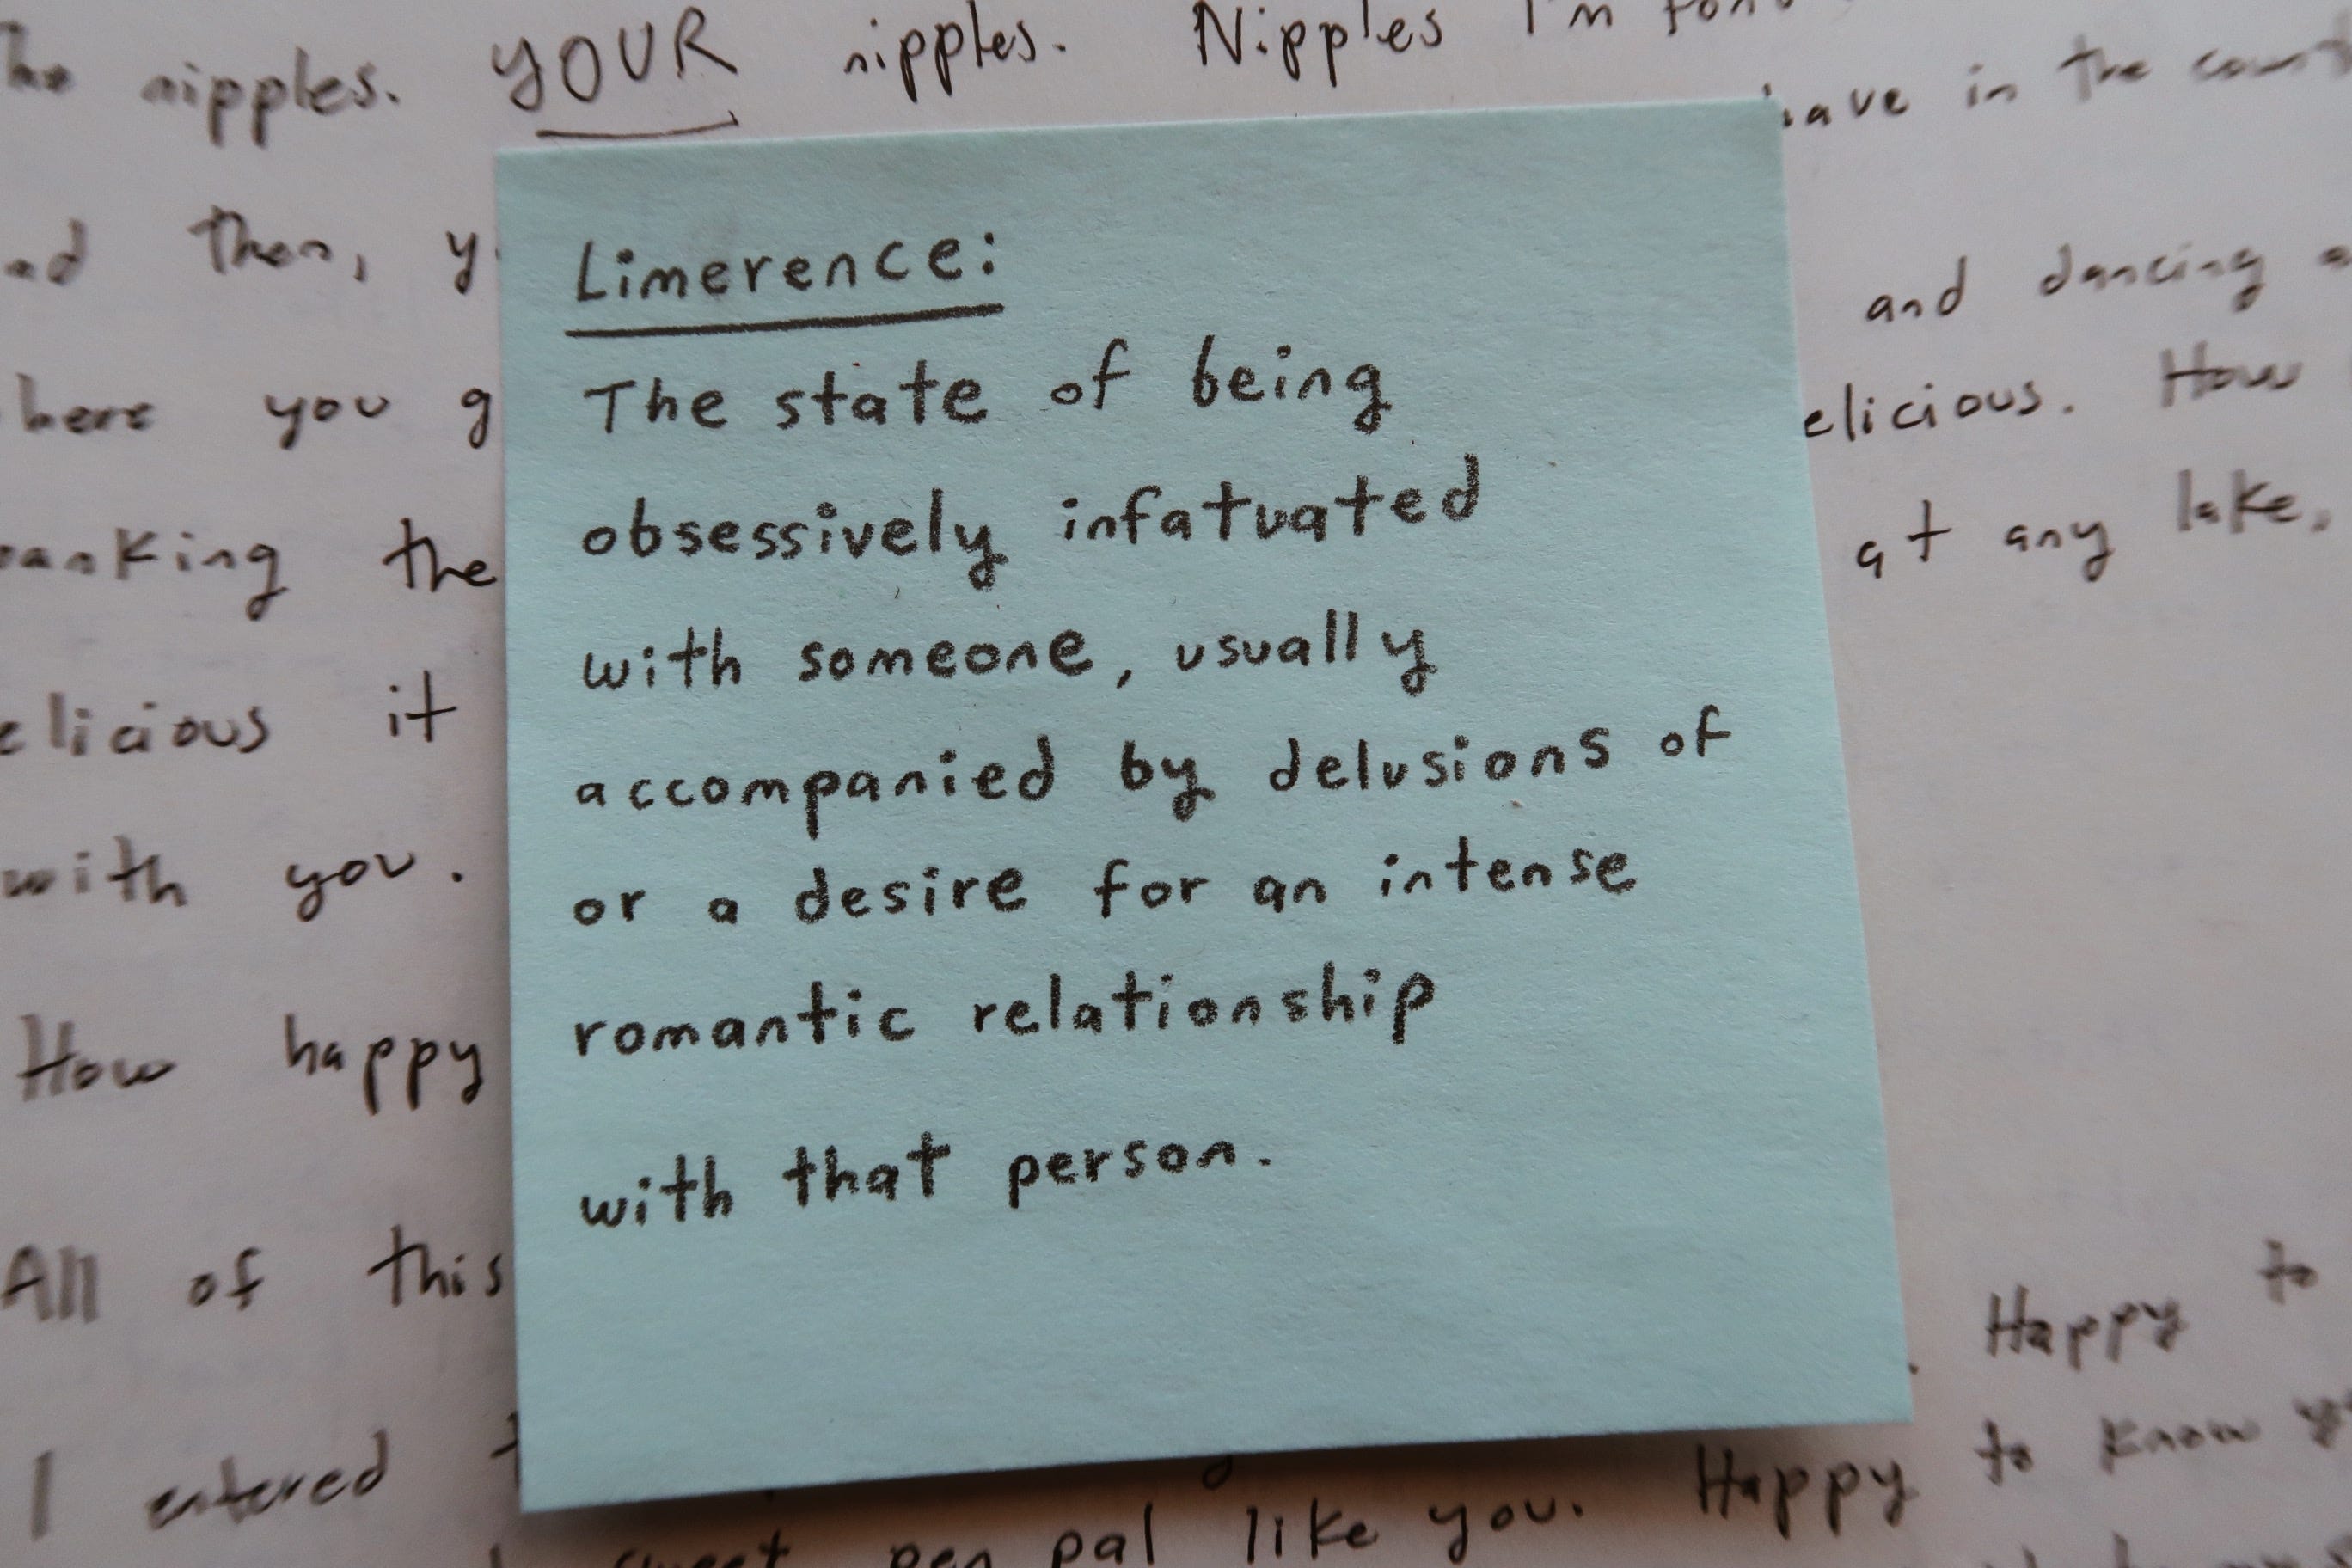 The nipples. YOUR nipples. Nipples I'm
have in the
then, and dancing
you
elicious. How
the at any lake,
elicious it
with you.
How happy
All of this
Happy to
I entered
Happy to know
pen pal like you.
Limerence:
The state of being
obsessively infatuated
with someone, usually
accompanied by delusions of
or a desire for an intense
romantic relationship
with that person.